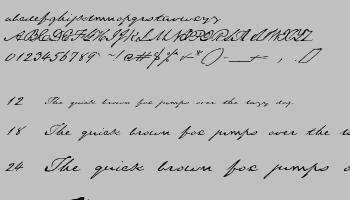 abcdefghijklmnopqrstuvwxyz
ABCDEFGHIJKLMNOPQRSTUVWXYZ
0123456789 ~!@#$%^&*()-_+= , .
12 The quick brown fox jumps over the lazy dog.
18 The quick brown fox jumps over the
24 The quick brown fox jumps